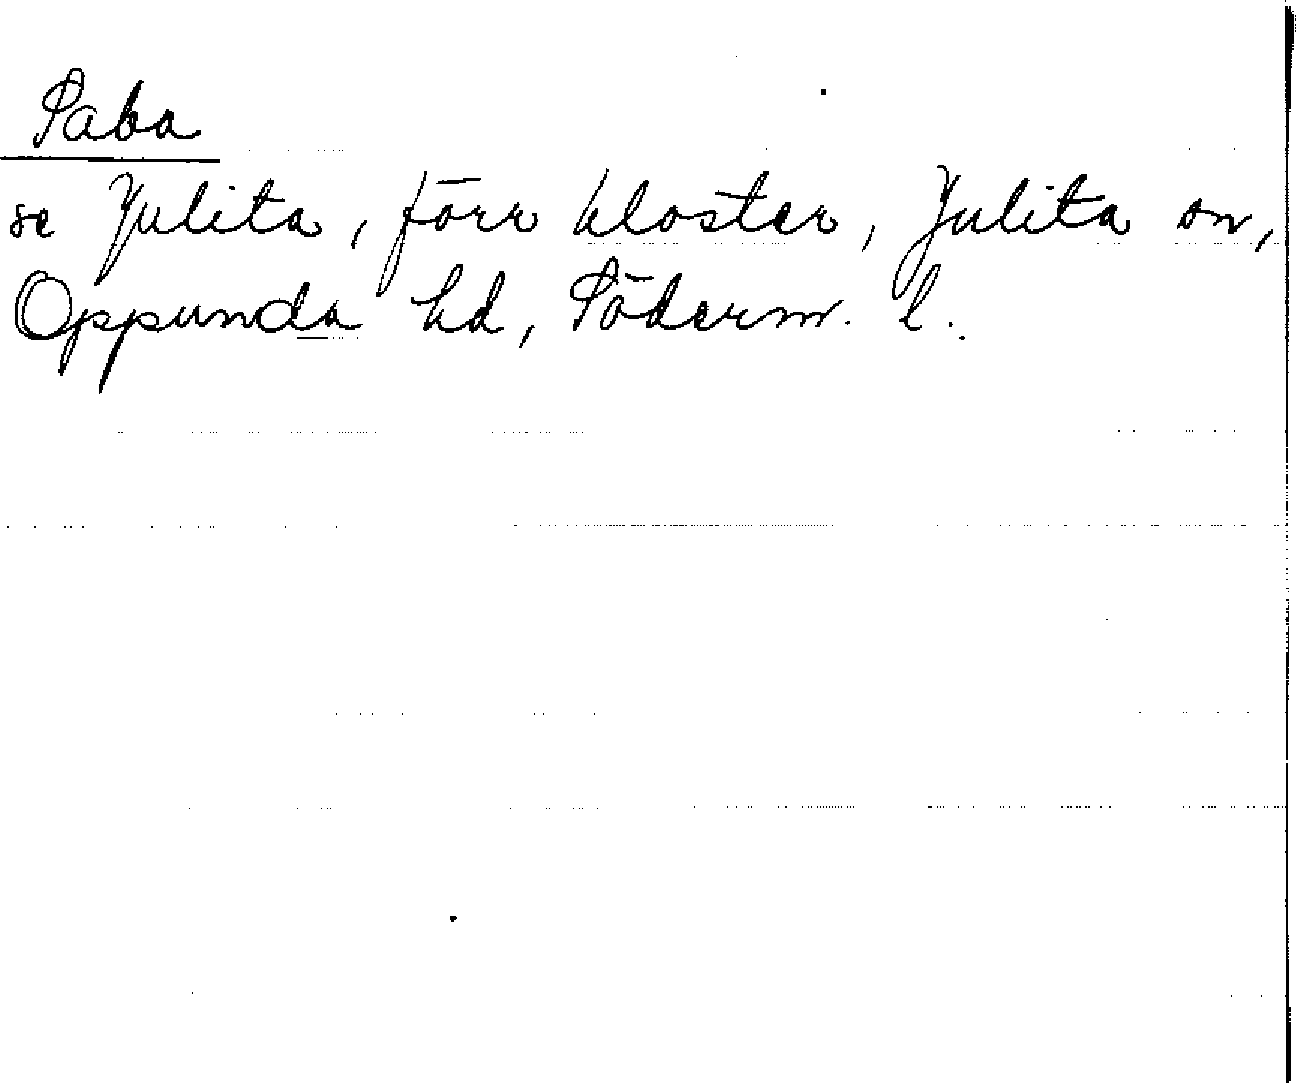 Saba
se Julita, förr kloster, Julita sn,
Oppunda hd, Söderm. l.